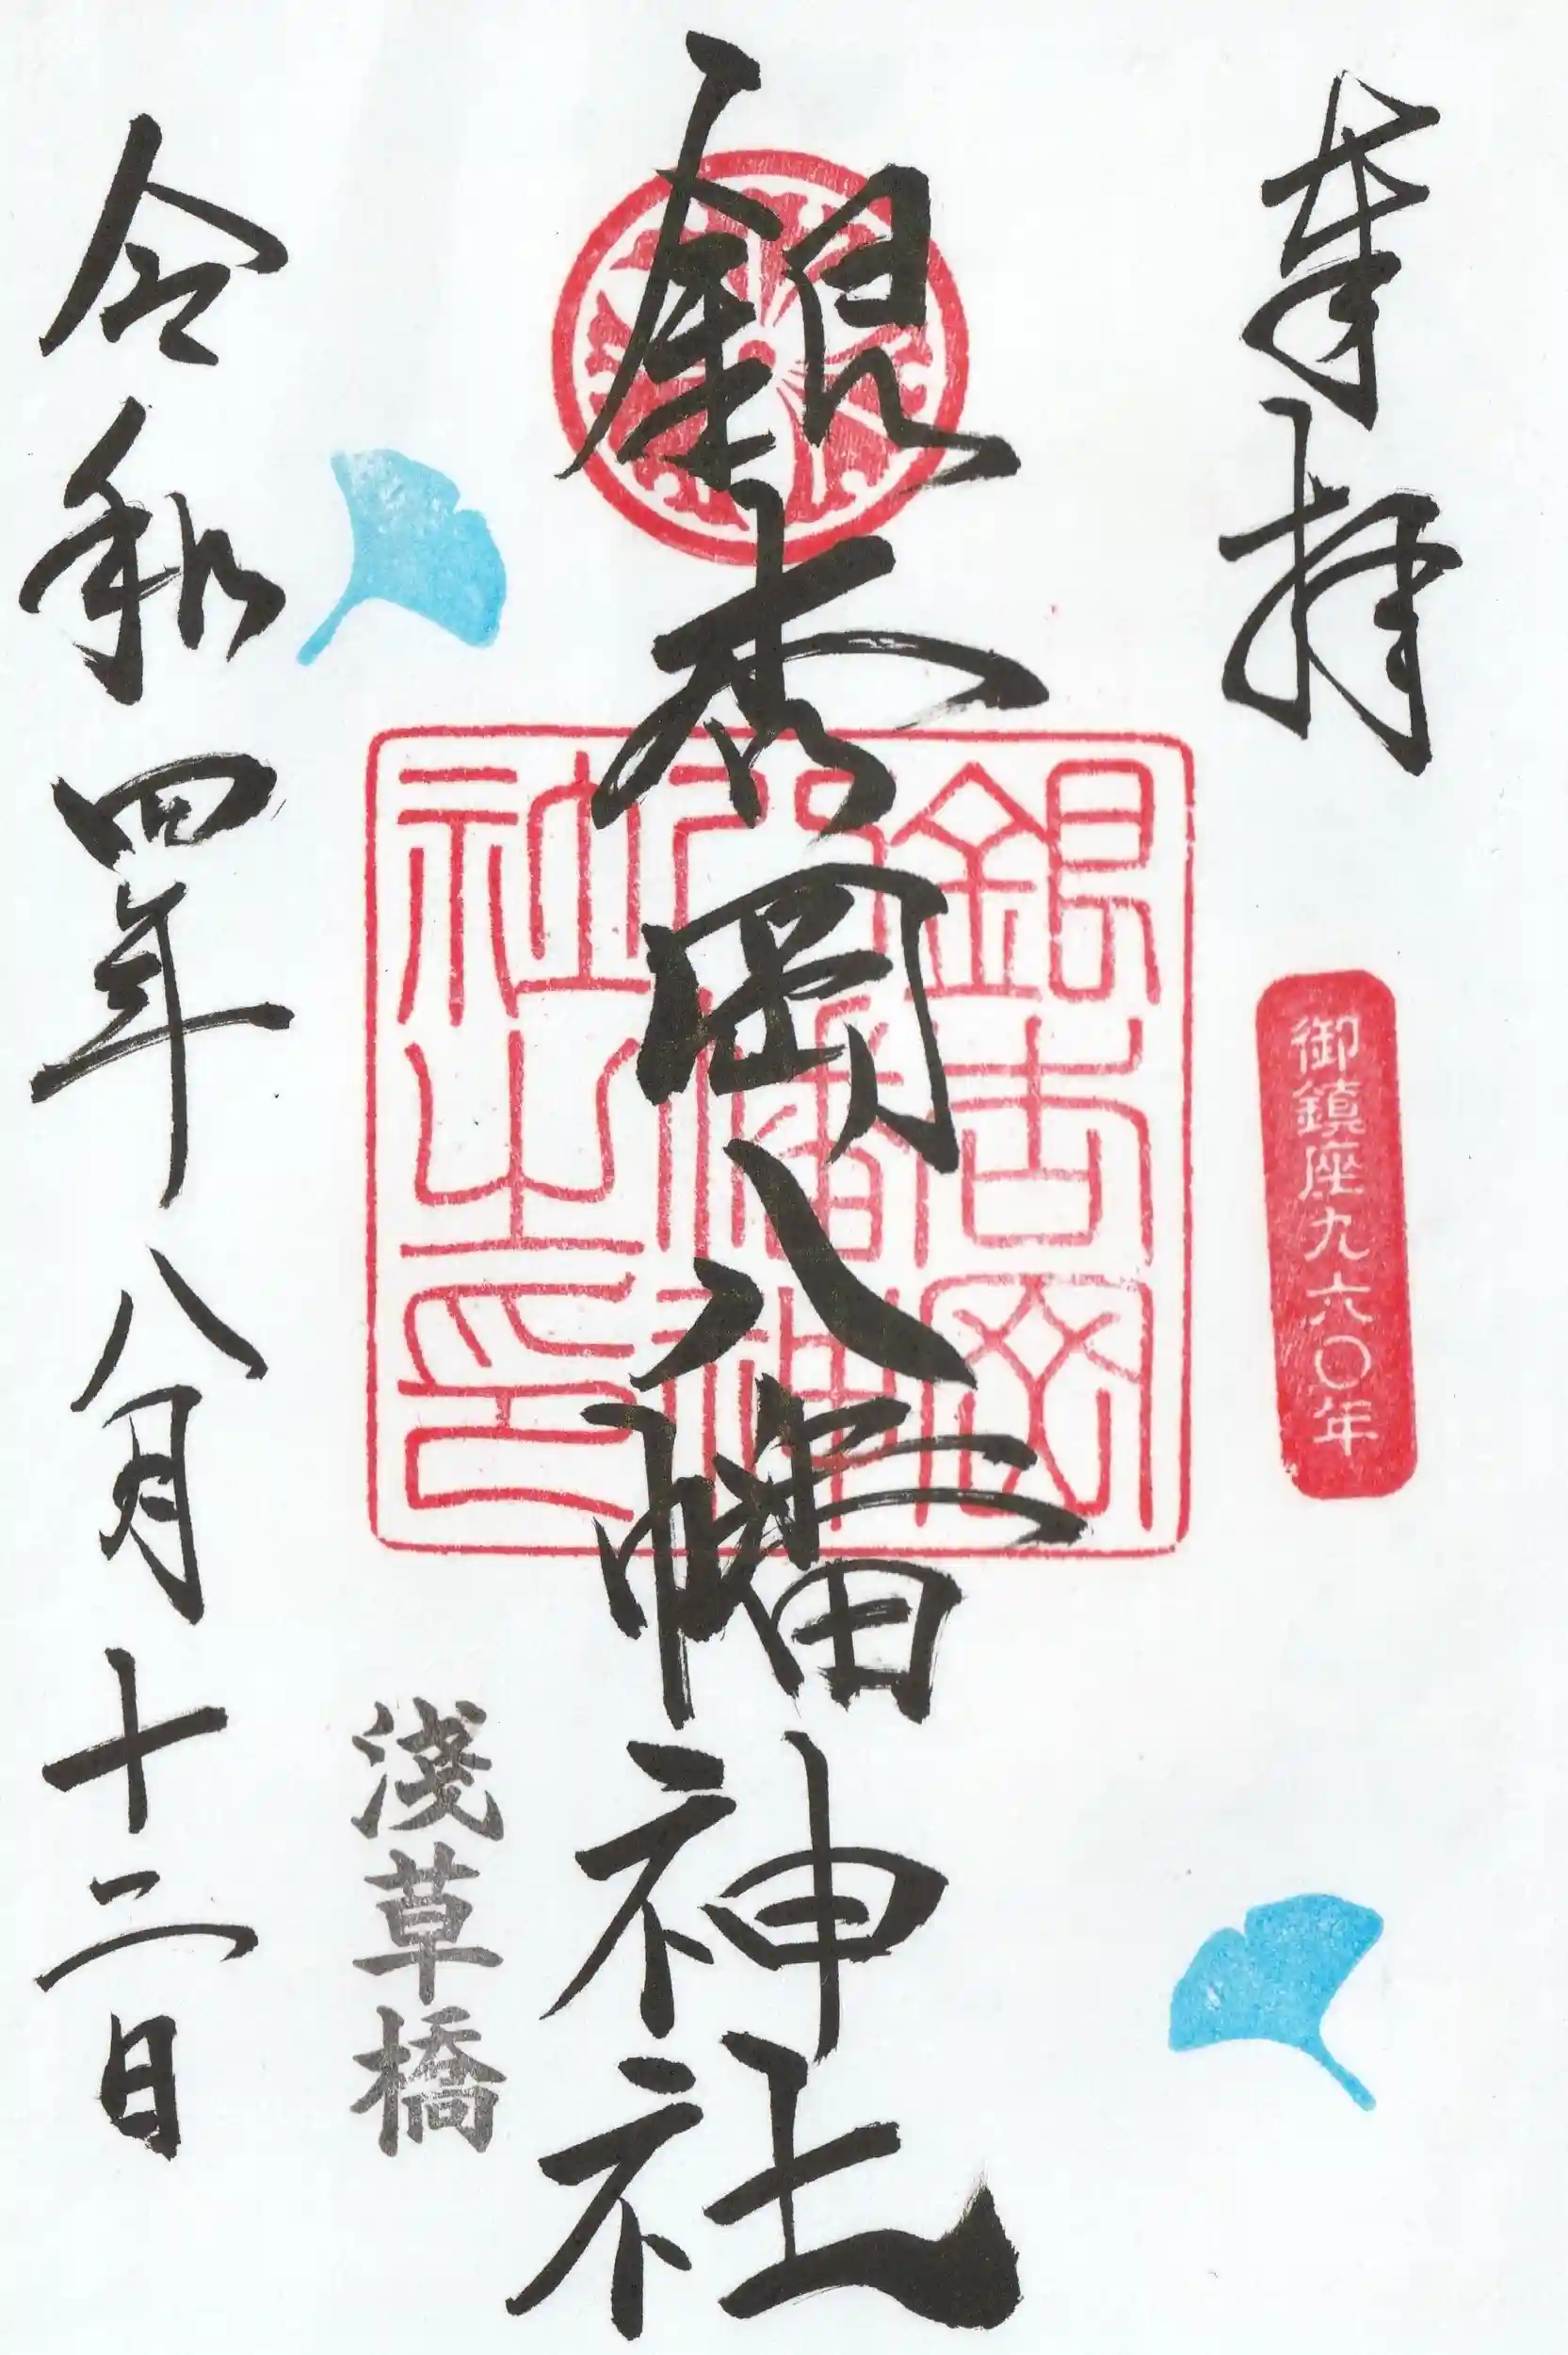 奉拝
御鎮座九六〇年
銀杏岡八幡神社
銀杏岡
八幡神
社之印
浅草橋
令和四年八月十二日